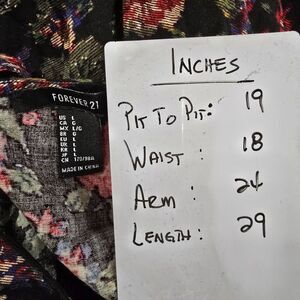 FOREVER 21
US L
CA G
MX L/G
BR G
EU L
UK L
KR L
JP L
CN 170/98A
MADE IN CHINA
INCHES
PIT TO PIT: 19
WAIST: 18
ARM: 24
LENGTH: 29